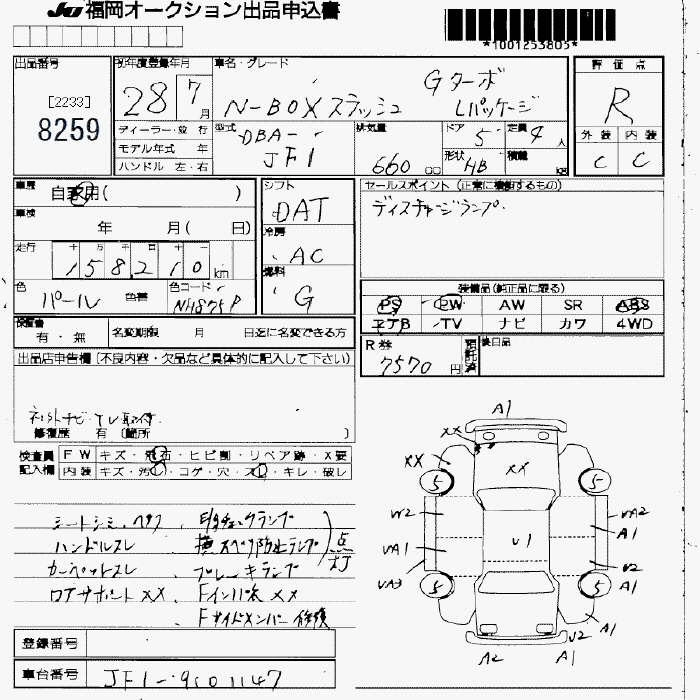 JU 福岡オークション出品申込書
*1001253805*
出品番号 初年度登録年月 車名・グレード 評価点
[2233] 28年 7月 Gターボ R
8259 N-BOXスラッシュ Lパッケージ
ディーラー・並行 型式 DBA- 排気量 ドア 5 定員 4人 外装 内装
モデル年式 年 JF1 660cc 形状 HB 積載 kg C C
ハンドル 左・右
車歴 自家用( ) シフト セールスポイント(正常に機能するもの)
車検 年 月( 日) DAT ディスチャージランプ.
走行 十 万 千 百 十 158210km 冷房 AC
色 パール 色替 色コード NH875P 燃料 G 装備品(純正品に限る)
PS PW AW SR ABS
エアB TV ナビ カワ 4WD
保証書 有・無 名変期限 月 日迄に名変できる方
R券 7570円 預託済 後日品
出品店申告欄(不良内容・欠品など具体的に記入して下さい)
ネットナビ TV取付.
修復歴 有 (箇所 )
検査員 FW キズ・飛石・ヒビ割・リペア跡・X要
記入欄 内装 キズ・汚レ・コゲ・穴・スレ・キレ・破レ
シートシミ.ヘタリ
ハンドルスレ 横スベリ防止ランプ 点灯
カーペットスレ ブレーキランプ
ロアサポート XX、 Fインパネ XX
Fサイドメンバー 修復
登録番号
車台番号 JF1-9101147
A1
XX
XX XX
5 5
W2 UA2
A1
UA1 U1
UA3 U2
5 5 A1
A1
U2
A2 A1